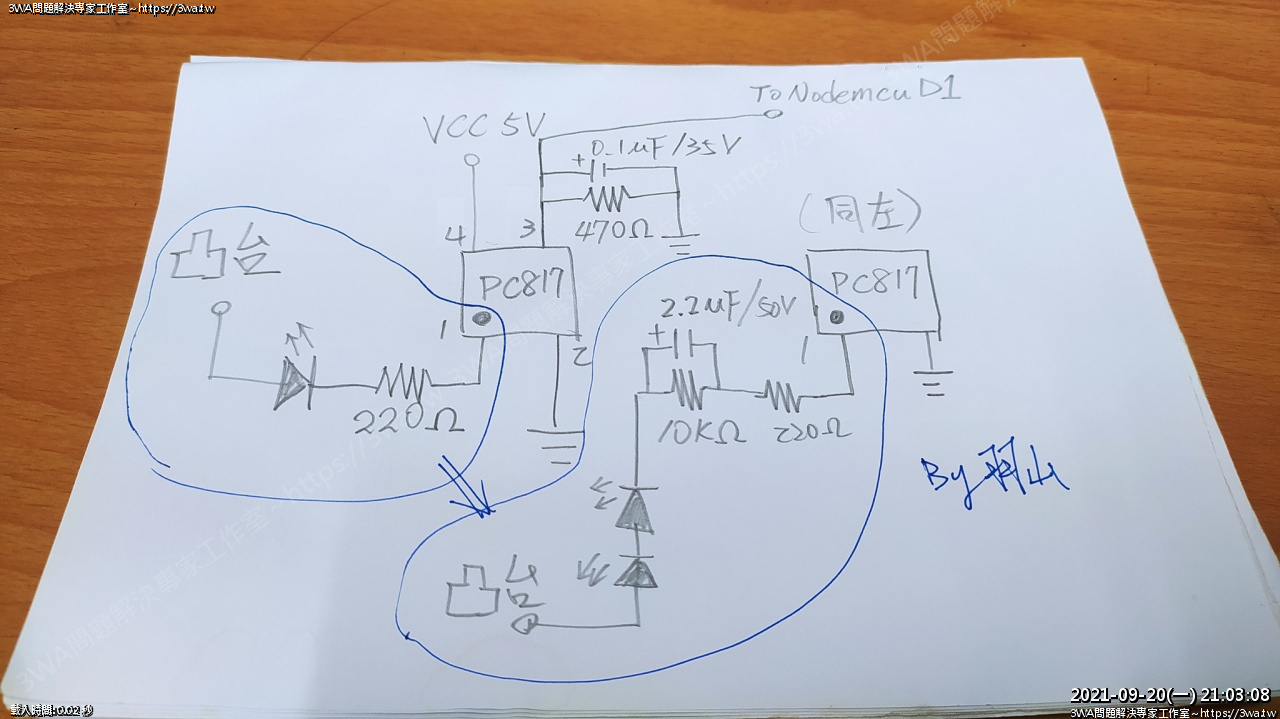 3WA問題解決專家工作室～https://3wa.tw
To Nodemcu D1
VCC 5V
+ 0.1μF/35V
470Ω
4
3
PC817
1
2
凸台
220Ω
(同左)
PC817
1
2.2μF/50V
+
10KΩ
220Ω
凸台
By 羽山
2021-09-20(一) 21:03:08
3WA問題解決專家工作室～https://3wa.tw
載入時間:0.02 秒